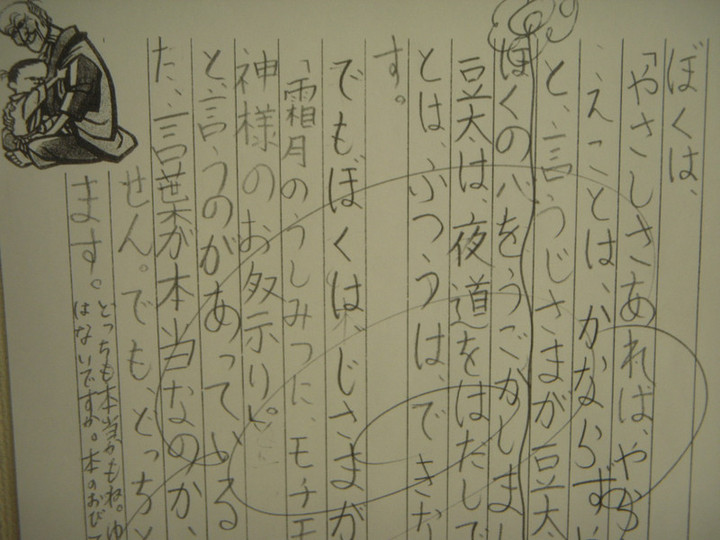 ぼくは、
「やさしさあれば、やら
えことは、かならず
と、言うじさまが豆太
ぼくの心をうごかしまし
豆太は、夜道をはたしで
とは、ふつうは、できな
す。
でもぼくは、じさまが
「霜月のうしみつに、モチモ
神様のお祭り。
と、言うのがあっている
た、言葉が本当なのか、
せん。でも、どっちと
ます。
どっちも本当かもね。ゆ
はないですか。本のおび